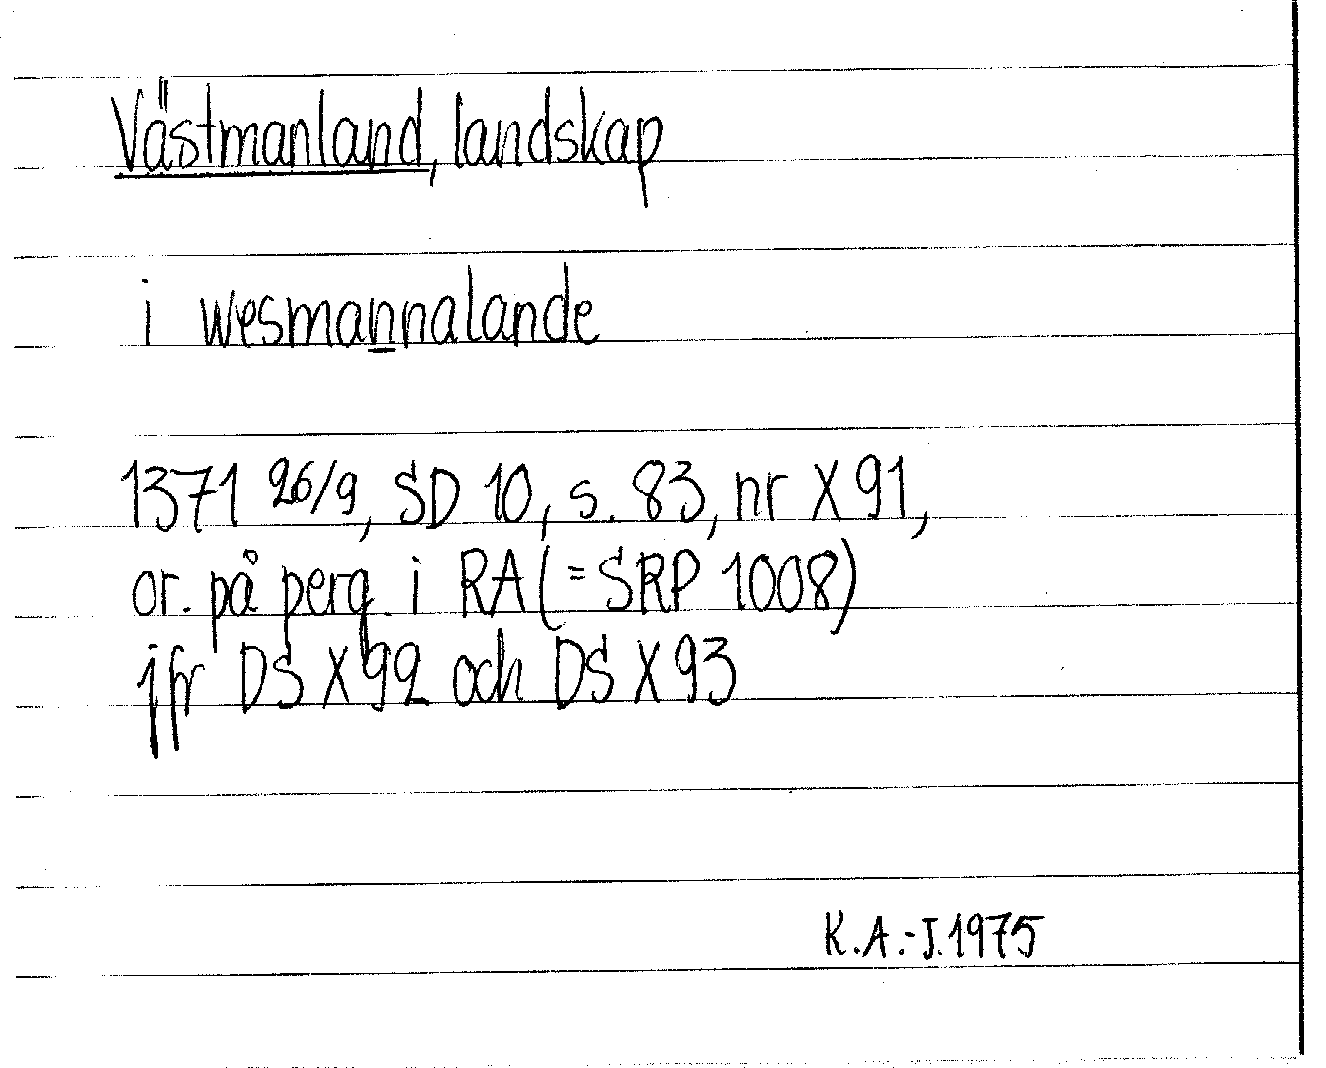 Västmanland, landskap
i wesmannalande
1371 26/9, SD 10, s. 83, nr X 91,
or. på perg. i RA (=SRP 1008)
jfr DS X 92 och DS X 93
K.A.-J. 1975